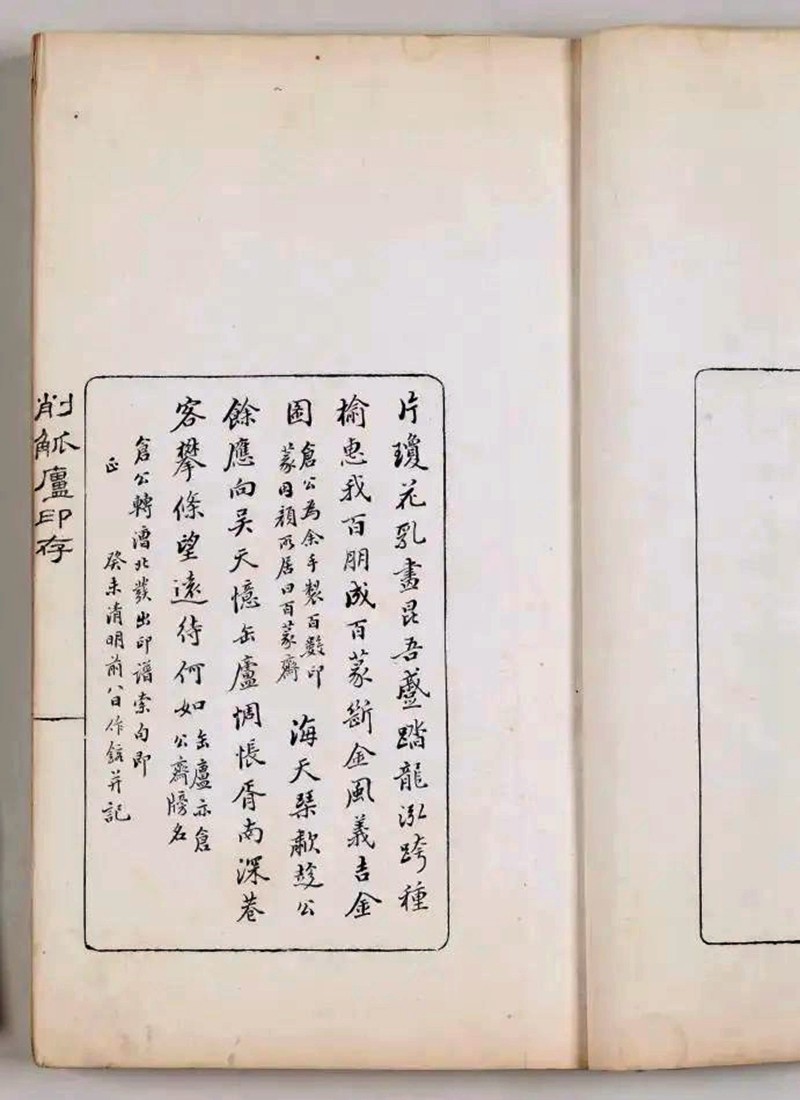 片瓊花乳畫昆吾蹙踏龍泓跨種
榆惠我百朋成百篆斷金風義吉金
圖
倉公為余手製百數印
篆因顏所居曰百篆齋
海天琴歗趁公
餘應向吳天憶缶廬惆悵胥南深巷
客攀條望遠待何如
缶廬亦倉
公齋牓名
倉公轉漕北發出印譜索句即
正 癸未清明前八日作并記
削觚廬印存